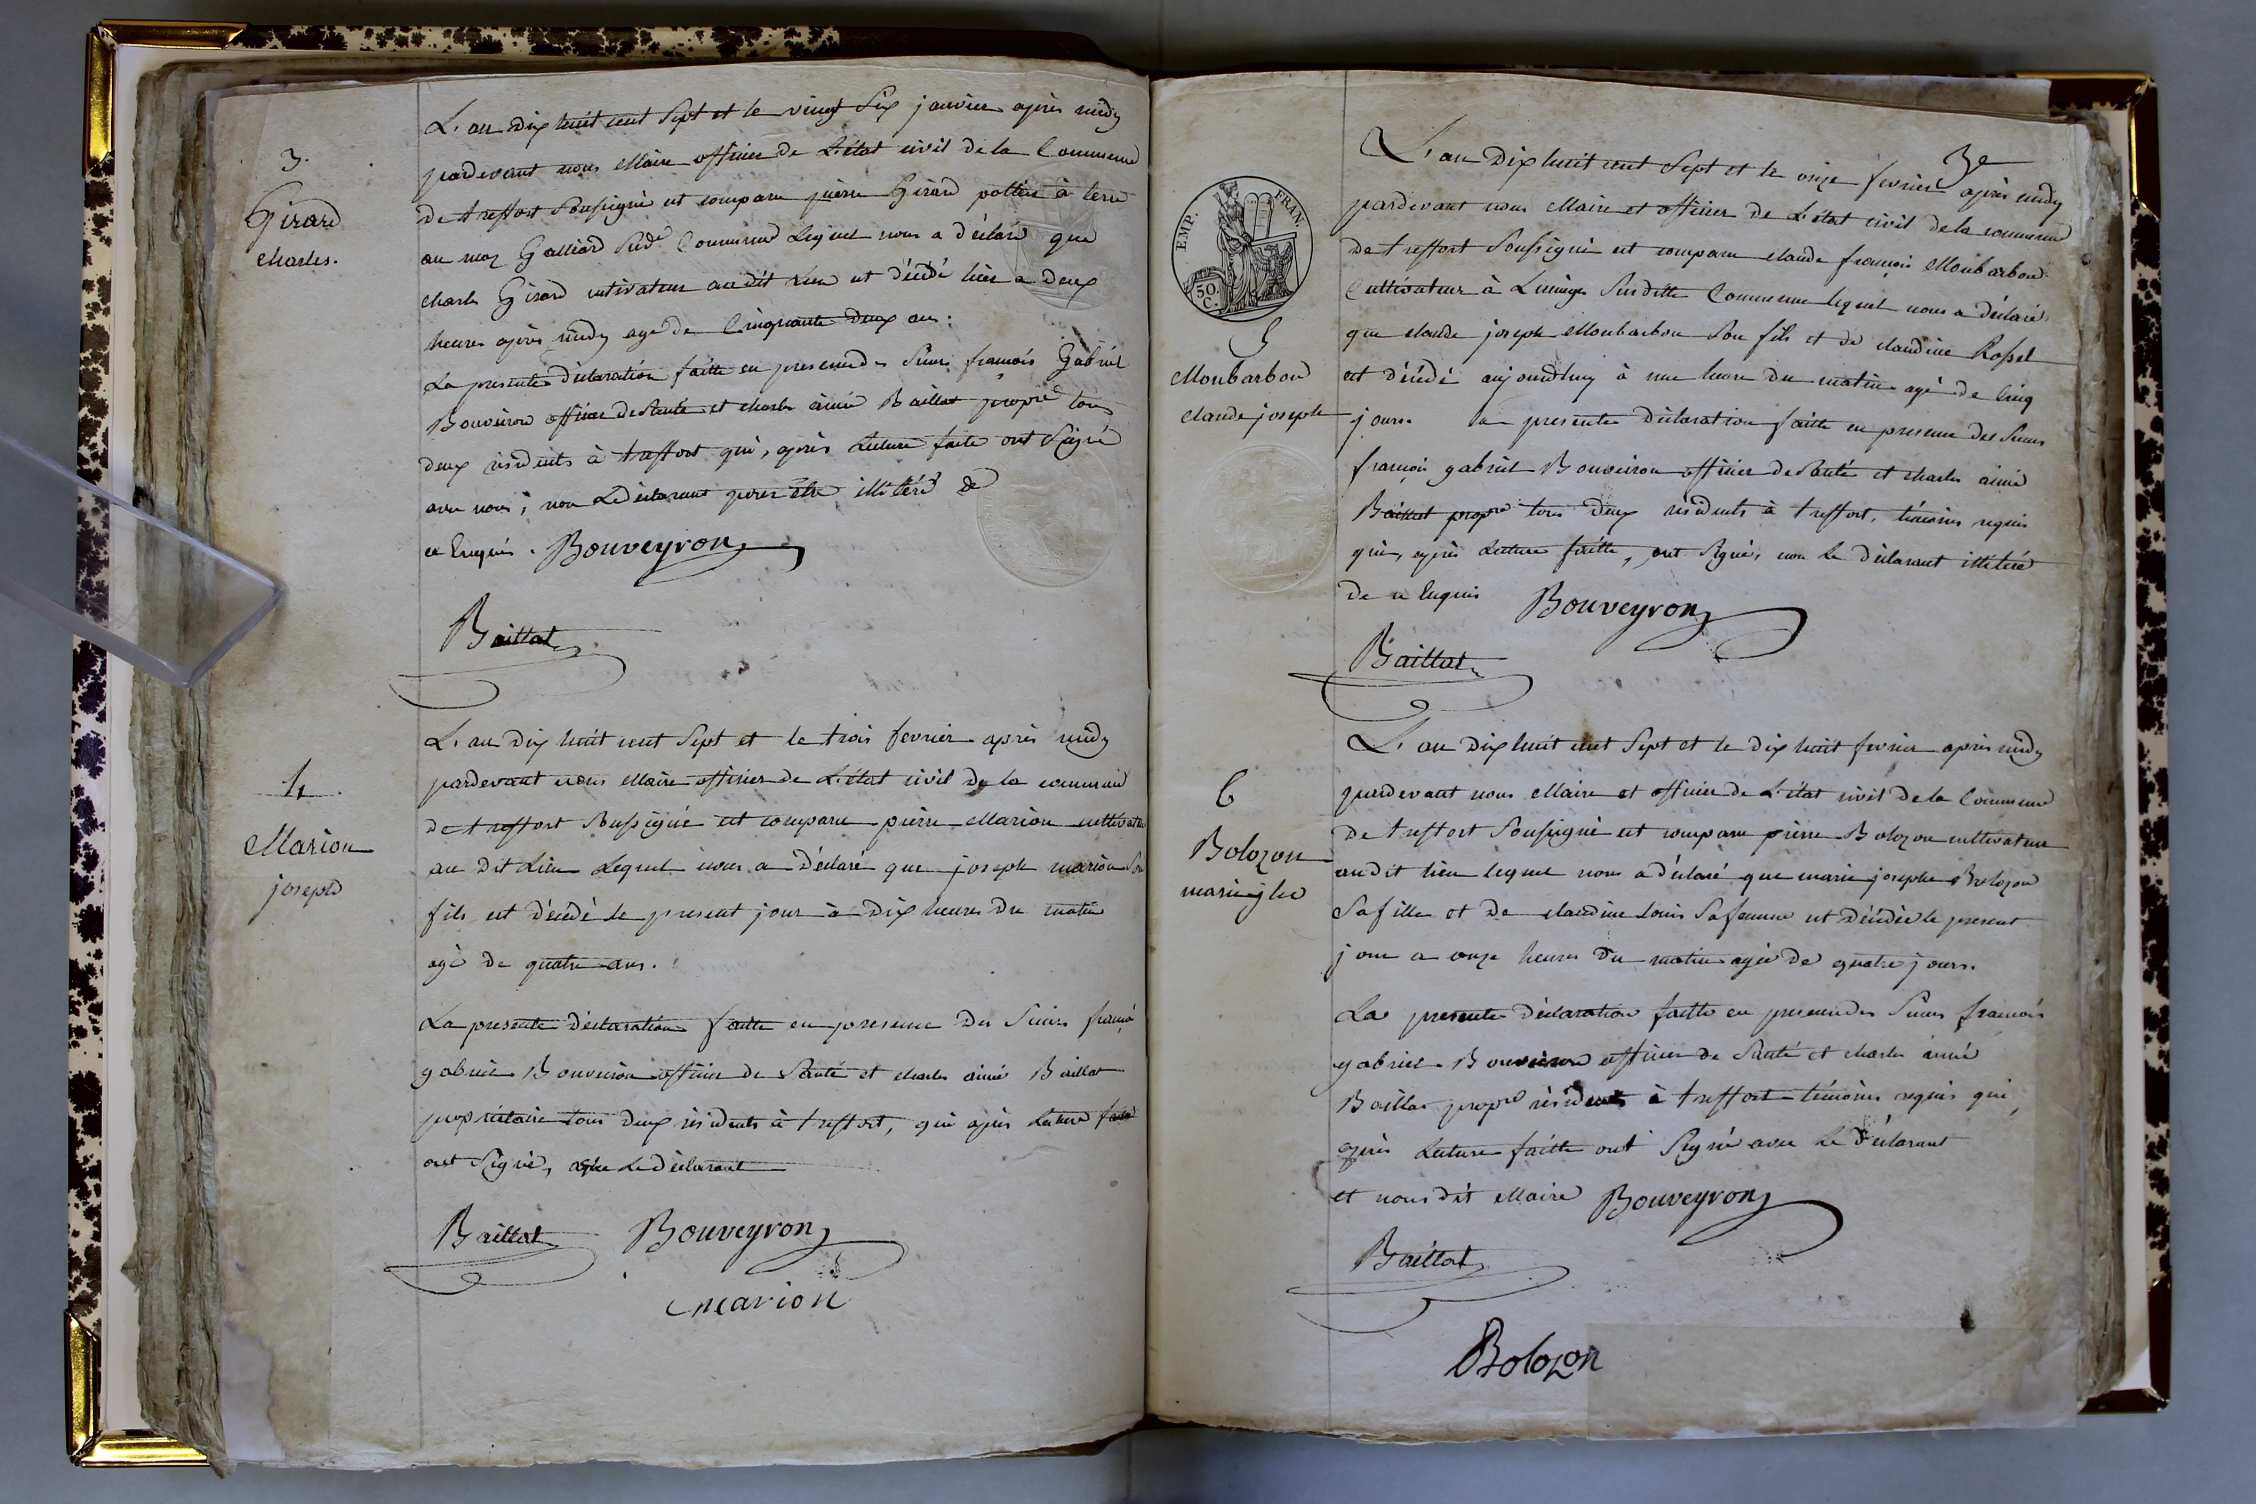 3.
Girard
charles.
L'an dix huit cent sept et le vingt six janvier après midy
pardevant nous Maire officier de L'état civil de la Commune
de treffort soussigné est comparu pierre Girard pottier à terre
au maz Galliard sudte Commune Lequel nous a déclaré que
charles Girard cutivateur audit lieu est décédé hier a deux
heures après midy agé de Cinquante deux ans.
La presente déclaration faitte en presence des sieurs françois Gabriel
Bouveiron officier de santé et charles aimé Baillat propre tous
deux résidents à treffort qui, après Lecture faite ont signé
avec nous, non Le déclarant pour être illitéré de
ce Enquis. Bouveyron
Baillat
4.
Marion
joseph
L'an dix huit cent sept et le trois fevrier après midy
pardevant nous Maire officier de L'état civil de la commune
de treffort soussigné est comparu pierre Marion cultivateur
au dit Lieu Lequel nous a déclaré que joseph marion son
fils est décédé le present jour à dix heures du matin
agé de quatre ans.
La presente déclaration faitte en presence des sieurs françois
gabriel Bouveiron officier de santé et charles aimé Baillat
propriétaire tous deux résidents à treffort, qui après Lecture faite
ont signé, avec Le déclarant
Baillat Bouveyron
marion
3e
EMP. FRAN.
50. C.
5
Monbarbon
claude joseph
L'an dix huit cent sept et le onze fevrier après midy
pardevant nous Maire et officier de L'état civil de la commune
de treffort soussigné est comparu claude françois Monbarbon
Cultivateur à Lucinges susditte Commune lequel nous a déclaré
que claude joseph Monbarbon son fils et de claudine Rossel
est décédé aujourdhuy à une heure du matin agé de Cinq
jours. La presente déclaration faitte en presence des sieurs
françois gabriel Bouveiron officier de santé et charles aimé
Baillat propre tous deux résidents à treffort, témoins requis
qui, après Lecture faitte, ont signé, non Le déclarant illitéré
de ce Enquis Bouveyron
Baillat
6
Bolozon
marie jhe
L'an dix huit cent sept et le dix huit fevrier après midy
pardevant nous Maire et officier de L'état civil de la Commune
de treffort soussigné est comparu pierre Bolozon cultivateur
audit lieu lequel nous a déclaré que marie josephe Bolozon
sa fille et de claudine Louis sa femme est décédée le present
jour a onze heures du matin agée de quatre jours.
La presente déclaration faitte en presence des sieurs françois
gabriel Bouveiron officier de santé et charles aimé
Baillat propre résidents à treffort témoins requis qui,
après Lecture faitte ont signé avec Le déclarant
et nous dit Maire Bouveyron
Baillat
Bolozon